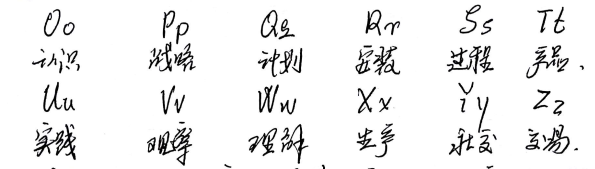 Oo Pp Qq Rr Ss Tt
认识 战略 计划 安装 过程 产品、
Uu Vv Ww Xx Yy Zz
实践 观察 理解 生产 社交 交易.